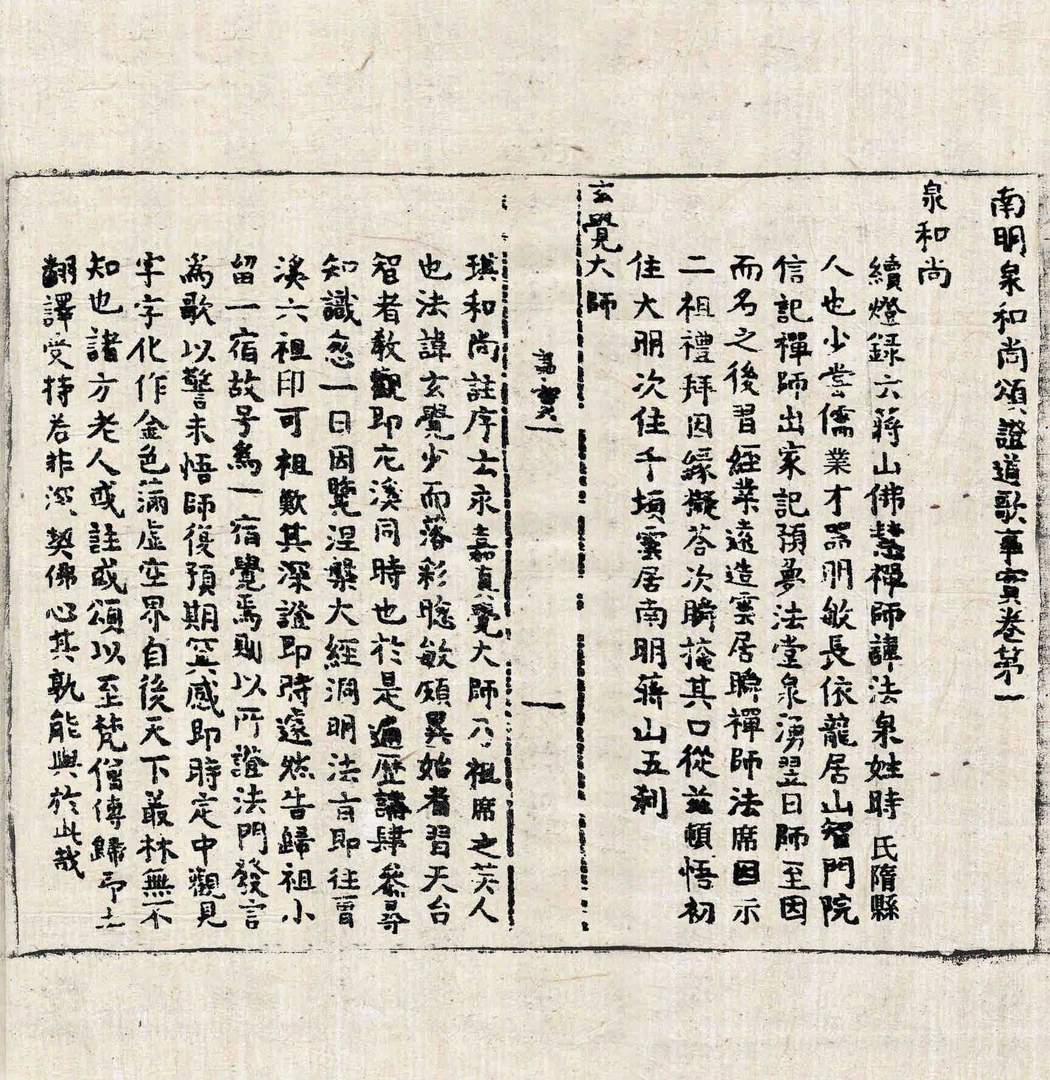 南明泉和尚頌證道歌事實卷第一
泉和尚
續燈錄六蔣山佛慧禪師諱法泉姓時氏隋縣
人也少嘗儒業才器明敏長依龍居山智門院
信記禪師出家記預夢法堂泉湧翌日師至因
而名之後習經業遠造雲居曉禪師法席因示
二祖禮拜因緣擬荅次瞬掩其口從茲頓悟初
住大明次住千頃雲居南明蔣山五刹
玄覺大師
一
琪和尚註序云永嘉真覺大師乃祖席之英人
也法諱玄覺少而落彩聡敏頗異始者習天台
智者教觀即左溪同時也於是遍歷講肆叅尋
知識忽一日因覽涅槃大經洞明法旨即往曹
溪六祖印可祖歎其深證即時遽然告歸祖小
留一宿故号爲一宿覺焉則以所證法門發言
爲歌以警未悟師復預期冥感即時定中觀見
字字化作金色滿虛空界自後天下叢林無不
知也諸方老人或註或頌以至梵僧傳歸印土
翻譯受持若非深契佛心其孰能與於此哉